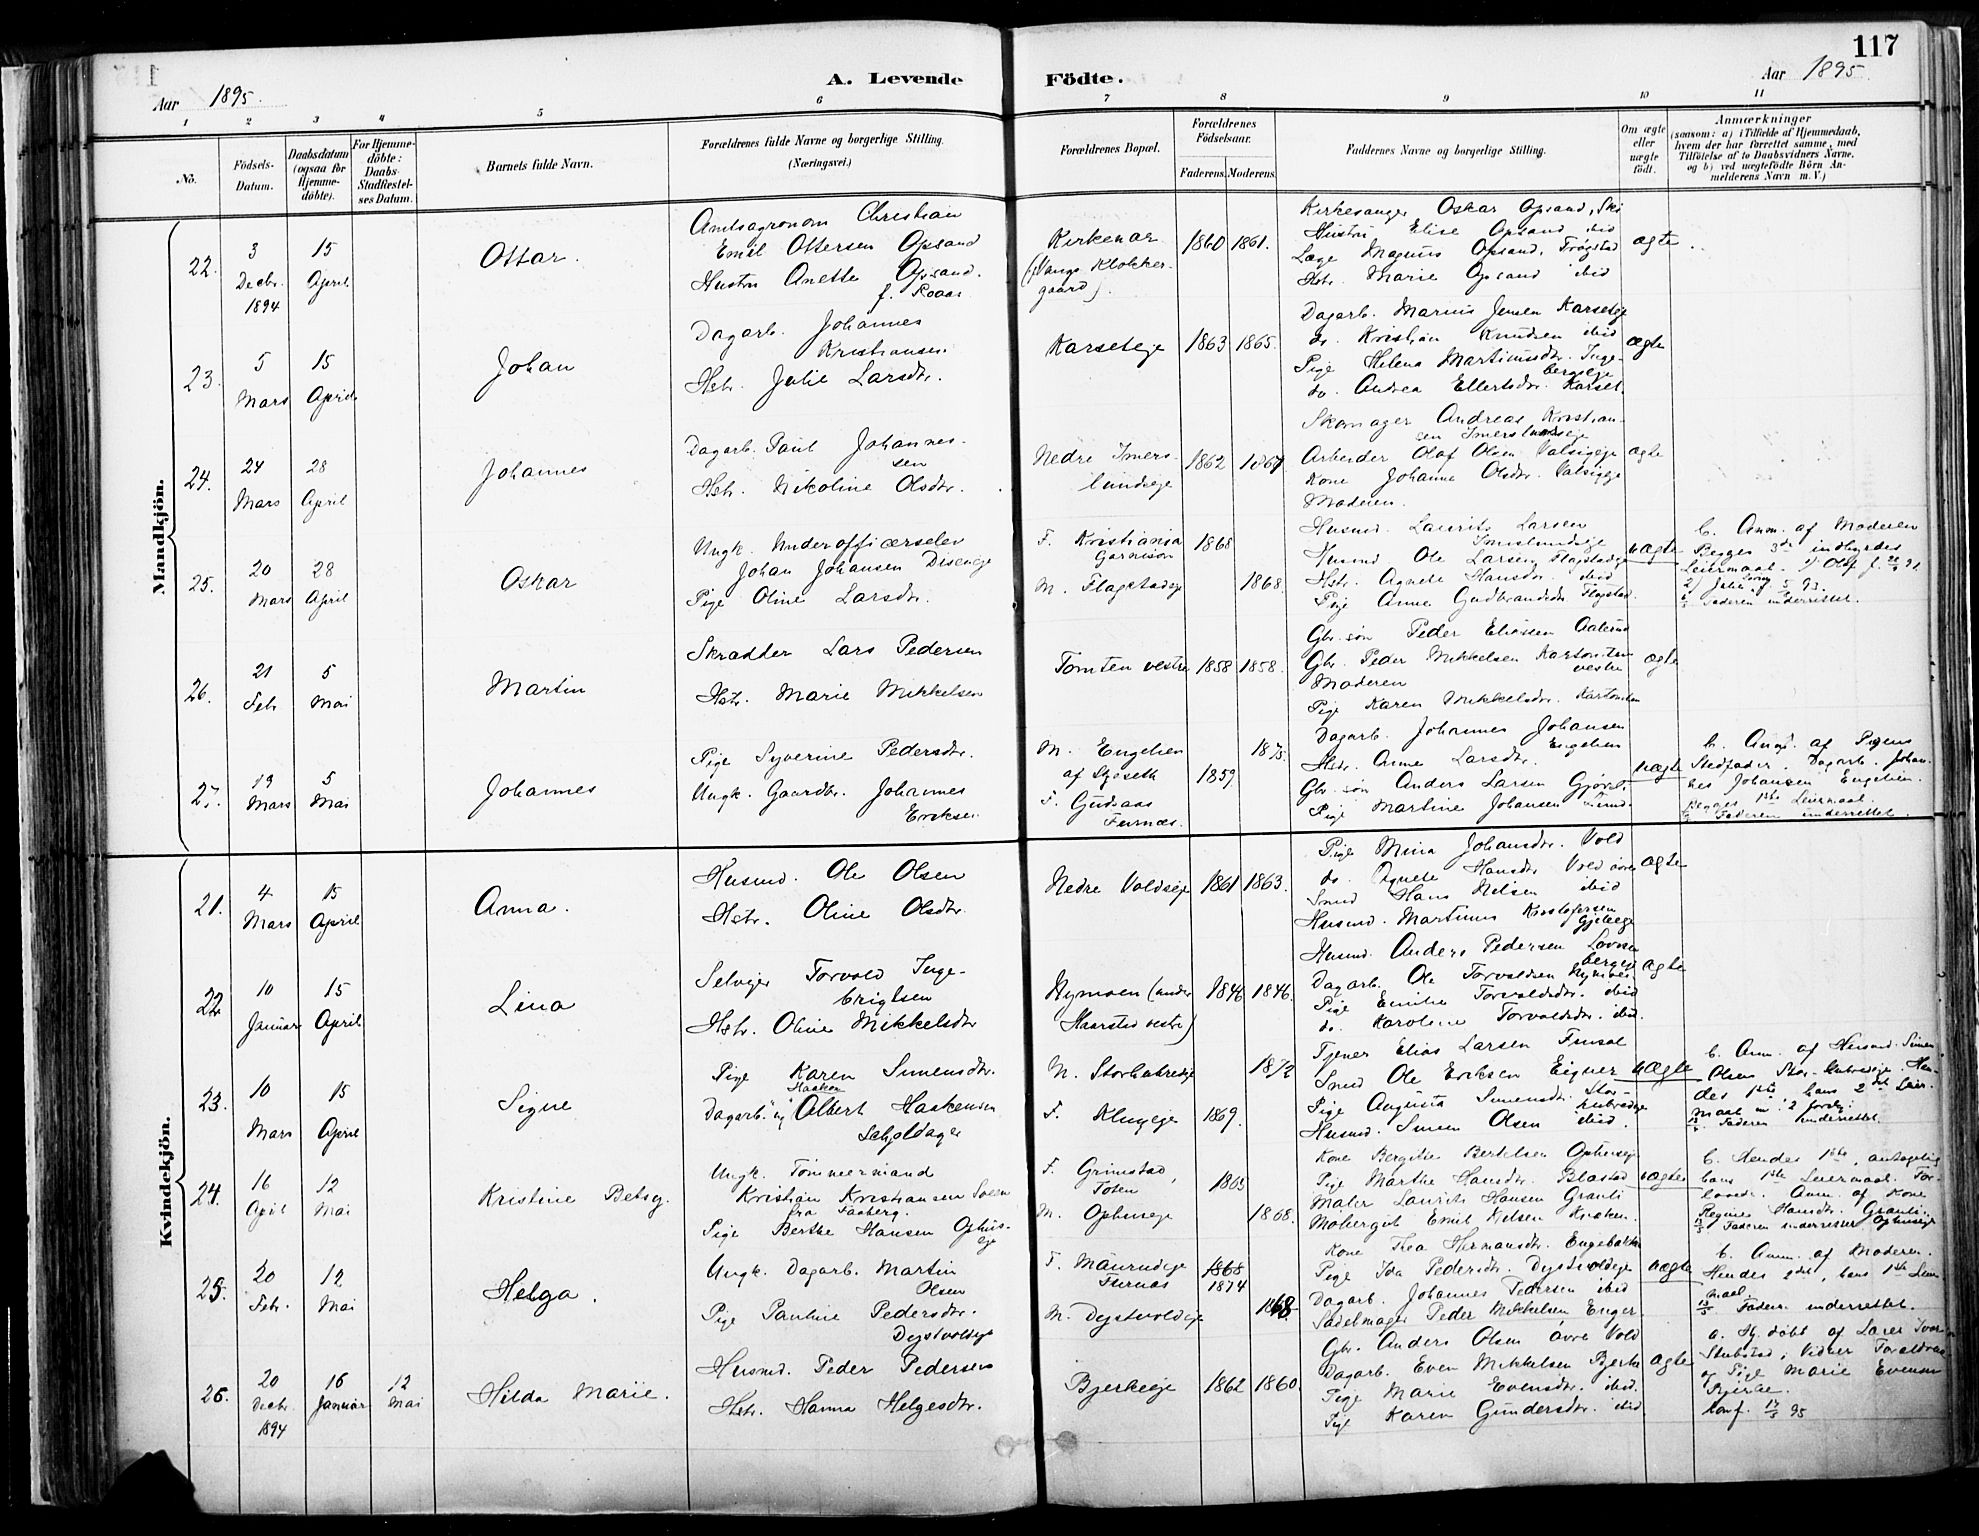 117
Aar 1895.
A. Levende Födte.
Aar 1895.
1 2 3 4 5 6 7 8 9 10 11
No.
Födsels-
Datum.
Daabsdatum
(ogsaa for
Hjemme-
döbte).
For Hjemme-
döbte:
Daabs-
Stadfæstel-
ses Datum.
Barnets fulde Navn.
Forældrenes fulde Navne og borgerlige Stilling.
(Næringsvei.)
Forældrenes Bopæl.
Forældrenes
Födselsaar.
Faderens. Moderens.
Faddernes Navne og borgerlige Stilling.
Om ægte
eller
uægte
födt.
Anmærkninger
(saasom: a) i Tilfælde af Hjemmedaab,
hvem der har forrettet samme, med
Tilföielse af to Daabsvidners Navne,
og b) ved uægtefödte Börn An-
melderens Navn m. V.)
Mandkjön.
22.
3 Decbr. 1894
15 April
Ottar.
Amtsagronom Christian
Emil Ottersen Opsand
Hustru Anette Opsand.
f. Roaas
Kirkenær
(Vangs Klokker-
gaard).
1860 1861.
Kirkesanger Oskar Opsand, Ski
Hustru Elise Opsand ibid
Læge Magnus Opsand, Trøgstad
Hstr. Marie Opsand ibid
ægte
23.
5 Mars
15 April
Johan
Dagarb. Johannes
Kristiansen
Hstr. Julie Larsdtr.
Karseteje
1863 1865.
Dagarb. Marius Jensen Karseteje
do. Kristian Knudsen ibid
Pige Helena Martinusdtr. Inge-
bergseje
do. Andrea Ellertsdtr. Karset.
ægte
24.
24 Mars
28 April
Johannes
Dagarb. Paul Johannes-
sen
Hstr. Nikoline Olsdtr.
Nedre Imers-
lundseje
1862 1867
Skomager Andreas Kristian-
sen Imerslundseje
Arbeider Olaf Olsen
Kone Johanne Olsdtr.
Moderen.
ægte
25.
20 Mars
28 April
Oskar
Ungk. Underofficerselev
Johan Johansen Diseneje
Pige Oline Larsdtr.
F. Kristiania
Garnison
M. Flagstadeje
1868
1868
Husmd. Laurits Larsen
Imerslundseje
Husmd Ole Larsen Flagstadeje
Hstr. Agnete Hansdtr. ibid
Pige Anne Gudbrandsdtr Flagstad.
uægte
b. Anm. af Moderen
Begges 3de indbyrdes
Leiermaal. 1) Olaf f.
2) Julie
Faderen underrettet.
26.
21 Febr.
5 Mai
Martin
Skrædder Lars Pedersen
Hstr. Marie Mikkelsen
Tomten vestre
1858 1858.
Gbr. søn Peder Eliassen Aalerud
Gbr. Peder Mikkelsen Kartomten
vestre
Moderen
Pige Karen Mikkelsdtr. Kartomten
ægte
27.
19 Mars
5 Mai
Johannes
Pige Syverine Pedersdtr.
Ungk. Gaardbr. Johannes
Eriksen
M. Engelien
af Sjøseth
F. Gudsaas
Furnæs.
1859
1875.
Dagarb. Johannes Johansen
Engelien
Hstr. Anne Larsdtr.
Gbr. søn Anders Larsen
Pige Martine Johansen
uægte
b. Anm. af Pigens
Stedfader. Dagarb. Johan-
nes Johansen Engelien.
Begges 1ste Leiermaal.
Faderen underrettet.
Kvindekjön.
21.
4 Mars
15 April
Anna.
Husmd. Ole Olsen
Hstr. Oline Olsdtr.
Nedre Voldseje
1861 1863.
Pige Mina Johansdtr. Vold
do. Agnete Hansdtr Vold øvre
Smed Hans Nilsen ibid
Husmd. Martinus Kristofersen
ægte
22
10 Januar
15 April
Lina
Selvejer Torvald Inge-
brigtsen
Hstr. Oline Mikkelsdtr
Nymoen (under
Haarstad vestre)
1846 1846.
Husmd. Anders Pedersen
Dagarb. Ole Torvaldsen Nymoen
Pige Emilie Torvaldsdtr. ibid
do. Karoline Torvaldsdtr. ibid.
ægte
23.
10 Mars
15 April
Signe
Pige Karen Simensdtr.
Haakon
Dagarb. Albert Haakensen
Skjoldager
M. Storhubredeje
F. Klugeje
1872
1869.
Tjener Elias Larsen Finsal
Smed Ole Eriksen Eigner
Pige Augusta Simensdtr. Stor-
hubredeje
Husmd. Simen Olsen ibid.
uægte
b. Anm. af Husmd. Simen
Olsen Stor-hubredeje. Hen-
des 1ste, hans 2det Leier-
maal
Faderen underrettet.
24.
16 April
12 Mai
Kristine Betsy.
Ungk. Tømmermand
Kristian Kristiansen
fra Faaberg.
Pige Berthe Hansen Ophus-
eje
F. Grimstad,
Toten
M. Ophuseje
1865
1868.
Kone Bergitte Bertelsen Ophuseje
Pige Marthe Hansdtr. Blæstad
Maler Laurits Hansen Granli
Emil Nilsen
uægte
b. Hendes 1ste, antagelig
hans 1ste Leiermaal. For-
lovede. Anm. af Kone
Regine Hansdtr. Granli.
13/5 Faderen underrettet Ophuseje
25.
20 Febr.
12 Mai
Helga.
Ungk. Dagarb. Martin
Olsen
Pige Pauline Pedersdtr.
Dystvoldeje
F. Maurudeje
Furnæs
M. Dystvoldeje
1868
1874
1868.
Kone Thea Hermansdtr. Engebakken
Pige Ida Pedersdtr. Dystvoldeje
Dagarb. Johannes Pedersen ibid
Sadelmager Peder Mikkelsen Enger
uægte
b. Anm. af Moderen.
Hendes 2det, hans 1ste Leier-
maal.
13/5 Faderen underrettet.
26.
20 Decbr. 1894
16 Januar
12 Mai
Hilda Marie.
Husmd. Peder Pedersen
Hstr. Hanna Helgesdtr.
Bjerkeeje
1862 1860.
Gbr. Anders Olsen øvre Vold
Dagarb. Even Mikkelsen Bjerke
Pige Marie Evensdtr. ibid.
Pige Karen Gundersdtr. ibid
ægte
a. Hj. døbt af Lærer Ivar
Stubstad, Vidner Forældrene
og Pige Marie Evensen
Bjerke.
Konf. 12/5 95